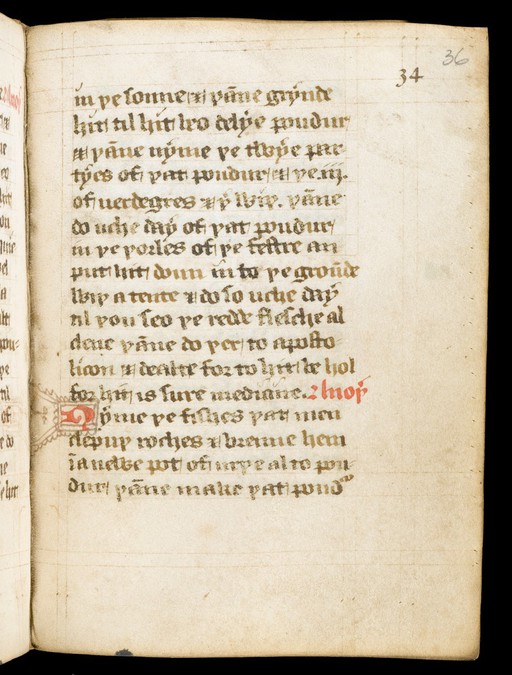 36
34
in ye sonne & yāne grynde
hit til hit beo delye poudur
& yāne nyme ye twye par
tyes of yat poudur & ye iij.
of uerdegres & y wis. yāne
do uche day of yat poudur
in ye yorles of ye festre an
put hit doun in to ye grounde
wiy a tente & do so uche day
til you seo ye rede flesche al
clene yāne do yer to aposto
licon & dealte for to hit be hol
for hit is sure medicine. Anoy
Nyme ye fisches yat men
clepuy roches & brenne hem
ī a newe pot of erye al to pou-
dur yāne make yat poud